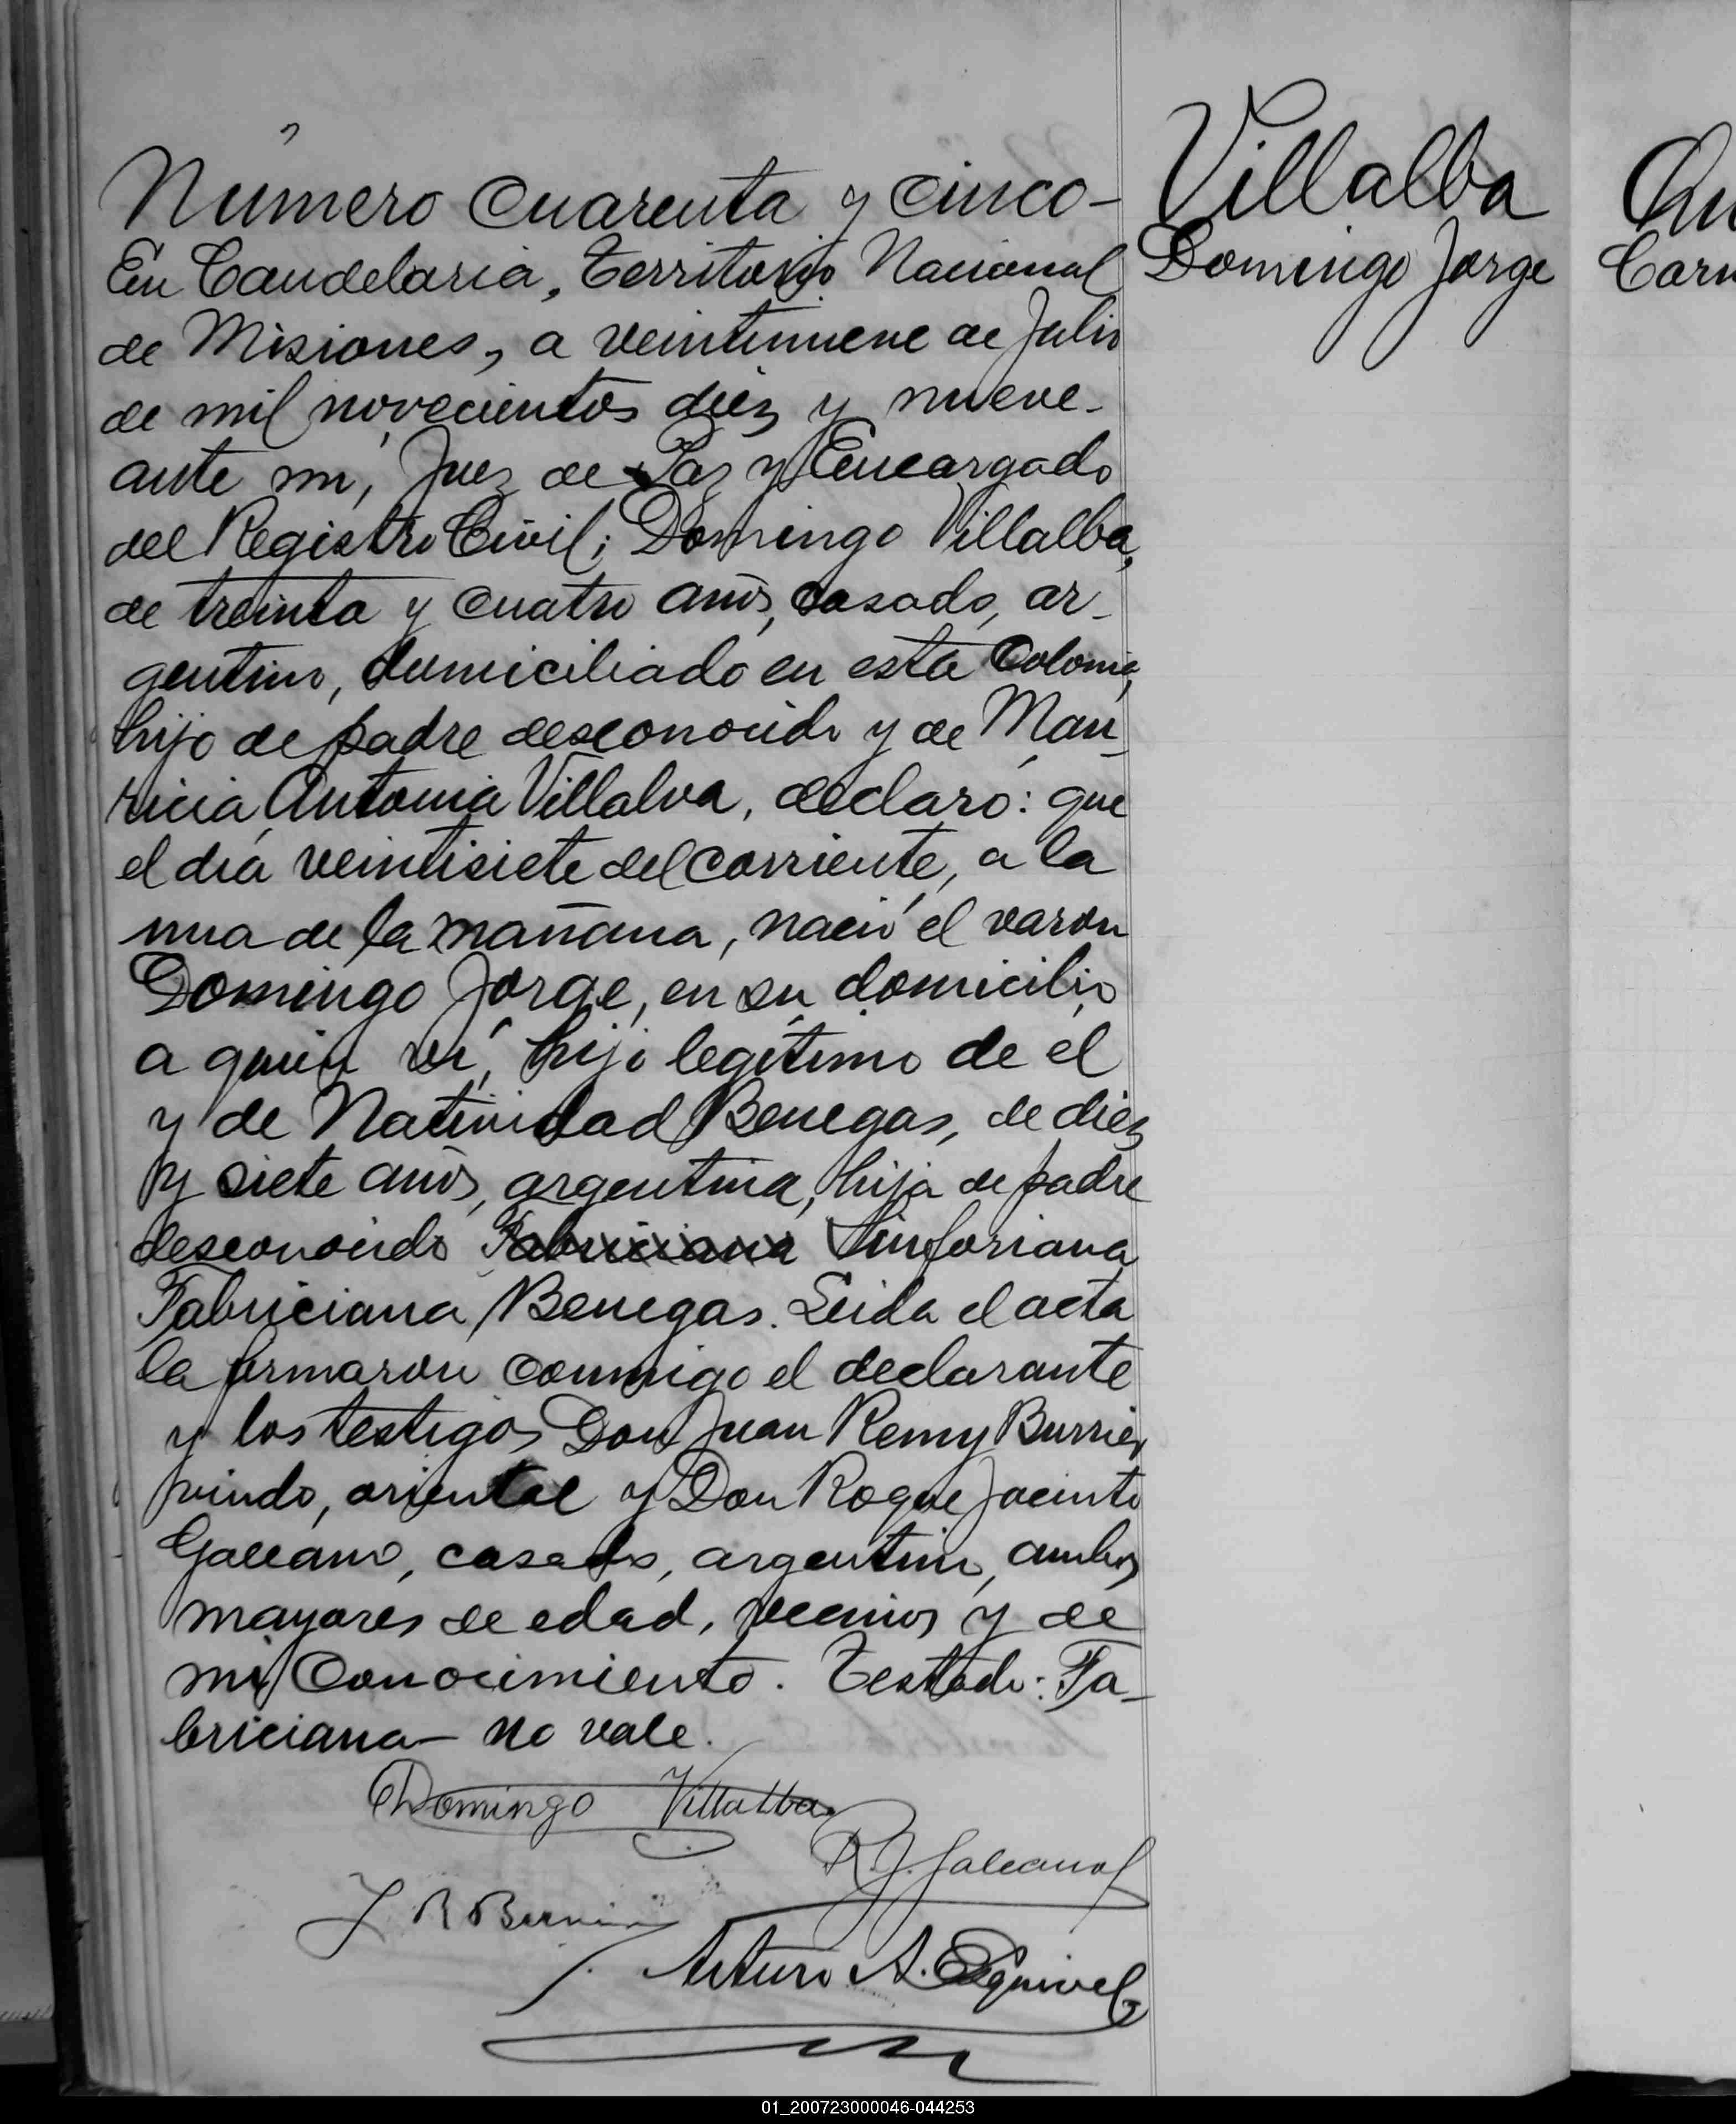 Número cuarenta y cinco-
En Candelaria, Territorio Nacional
de Misiones, a veintinueve de Julio
de mil novecientos diez y nueve-
ante mi, Juez de Paz y Encargado
del Registro Civil; Domingo Villalba,
de treinta y cuatro años, casado, ar-
gentino, domiciliado en esta Colonia,
hijo de padre desconocido y de Mau-
ricia Antonia Villalva, declaró: que
el dia veintisiete del corriente, a la
una de la mañana, nació el varon
Domingo Jorge, en su domicilio
a quien ví, hijo legítimo de él
y de Natividad Benegas, de diez
y siete años, argentina, hija de padre
desconocido Fabriciana Sinforiana
Fabriciana Benegas. Leida el acta
la firmaron conmigo el declarante
y los testigos Don Juan Remy
viudo, oriental y Don Roque Jacinto
Galeano, casado, argentino, ambos
mayores de edad, vecinos y de
mi conocimiento. Testado: Fa-
briciana- no vale.
Domingo Villalba
R. J. Galeano
J R
Arturo A. Esquivel
Villalba
Domingo Jorge
01_200723000046-044253